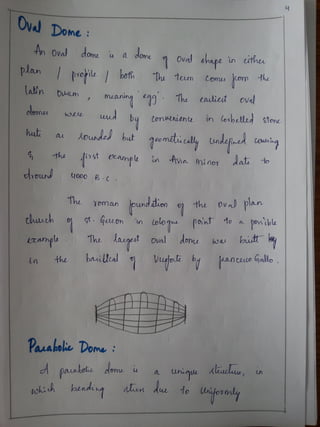 4
Oval Dome :
An oval dome is a dome of oval shape in either
plan / profile / both. The term comes from the
latin Ovum, meaning 'egg'. The earliest oval
domes were used by convenience in corbelled stone
huts as rounded but geometrically undefined covering
& the first example in Asia minor date to
around 4000 B.C.
The roman foundation of the oval plan
church of St. Gereon in cologne point to a possible
example. The largest oval dome was built by
in the basilical of by Francesco Gallo.
Parabolic Dome :
A parabolic dome is a unique structure, in
which bending due to Uniformly